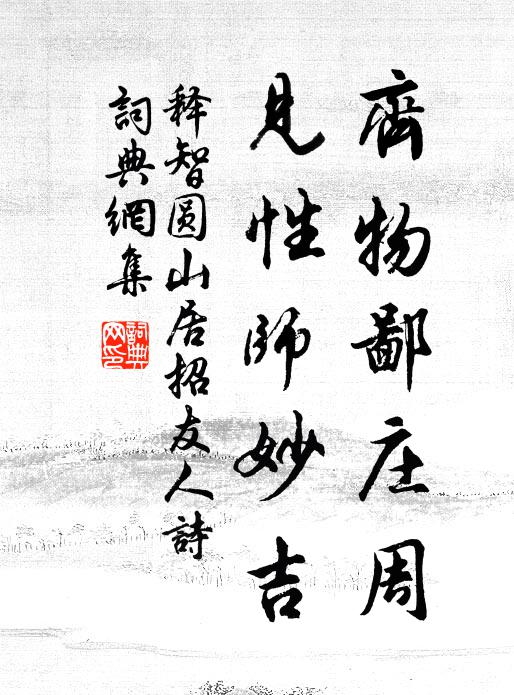 齊物鄙庄周
見性師妙吉
释智圆山居招友人詩
詞典網集
詞典网印